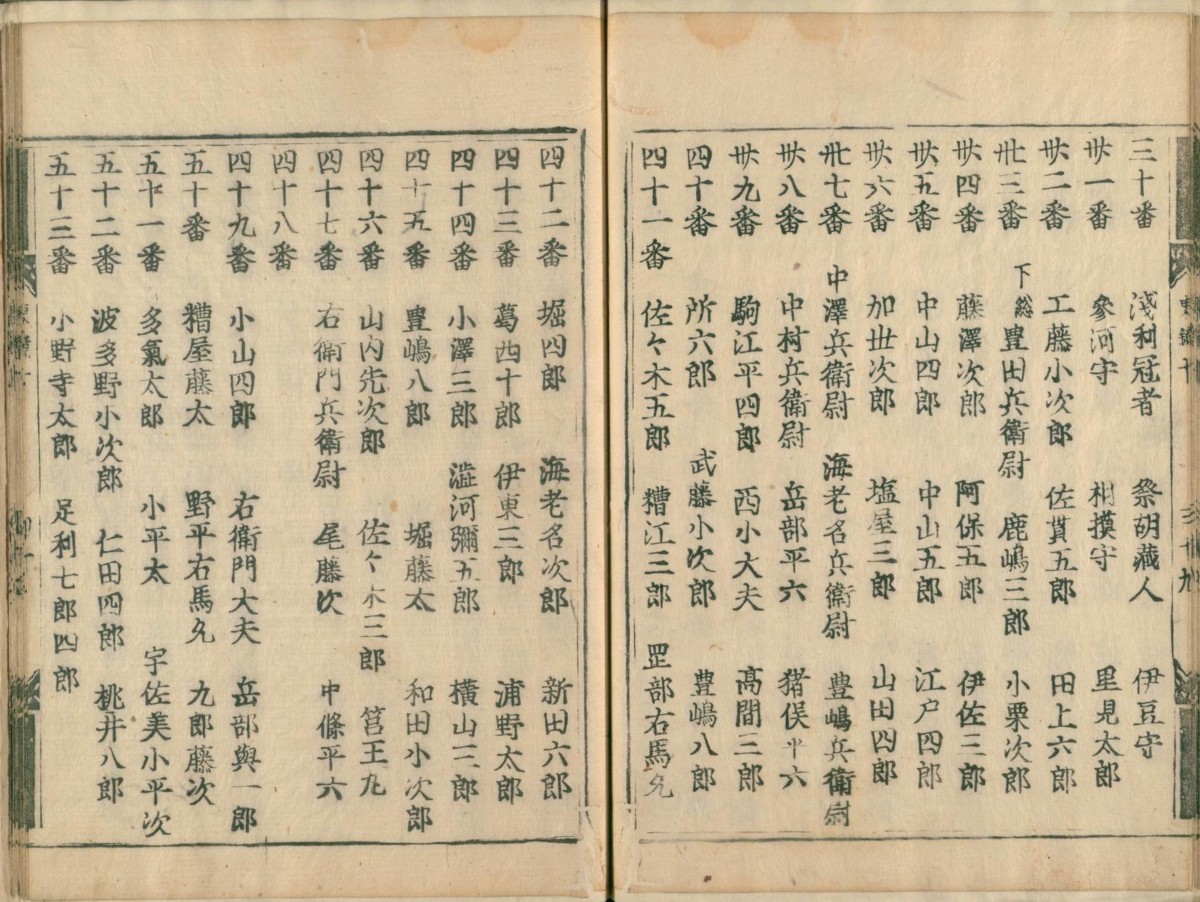 三十番 淺利冠者 祭胡藏人 伊豆守
丗一番 參河守 相摸守 里見太郎
丗二番 工藤小次郎 佐貫五郎 田上六郎
丗三番 下総豊田兵衛尉 鹿嶋三郎 小栗次郎
丗四番 藤澤次郎 阿保五郎 伊佐三郎
丗五番 中山四郎 中山五郎 江戸四郎
丗六番 加丗次郎 塩屋三郎 山田四郎
丗七番 中澤兵衛尉 海老名兵衛尉 豊嶋兵衛尉
丗八番 中村兵衛尉 岳部平六 猪俣平六
丗九番 駒江平四郎 西小大夫 高間三郎
四十番 所六郎 武藤小次郎 豊嶋八郎
四十一番 佐々木五郎 糟江三郎 罡部右馬允
四十二番 堀四郎 海老名次郎 新田六郎
四十三番 葛西十郎 伊東三郎 浦野太郎
四十四番 小澤三郎 澁河彌五郎 橫山三郎
四十五番 豊嶋八郎 堀藤太 和田小次郎
四十六番 山内先次郎 佐々木三郎 筥王丸
四十七番 右衛門兵衛尉 尾藤次 中條平六
四十八番
四十九番 小山四郎 右衛門大夫 岳部與一郎
五十番 糟屋藤太 野平右馬允 九郎藤次
五十一番 多氣太郎 小平太 宇佐美小平次
五十二番 波多野小次郎 仁田四郎 桃井八郎
五十三番 小野寺太郎 足利七郎四郎